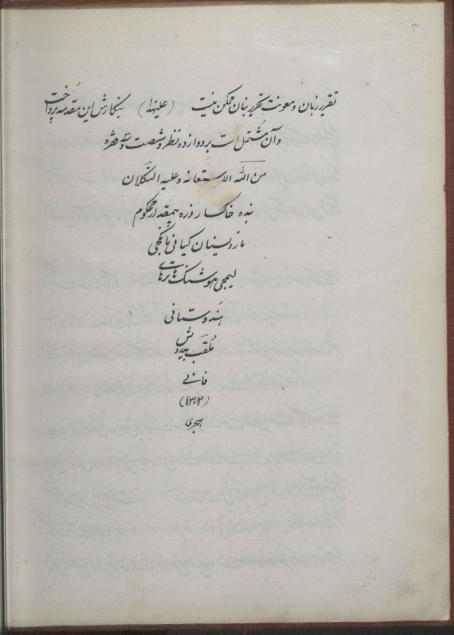 ۳
تقریر زبان و معونت تحریر بنان ممکن نیست (علیهذا) بنگارش این مقدمه پرداخت
و آن مشتمل است بر دوازده نظر و شصت و سه فقره
من الله الاستعانه و علیه التکلان
بنده خاکسار ذره بیمقدار محکوم
ماردینان کیانی مانکجی
لیمجی هوشنگ هاتریای
هندوستانی
ملقب بدرویش
فانی
(۱۳۰۲)
هجری